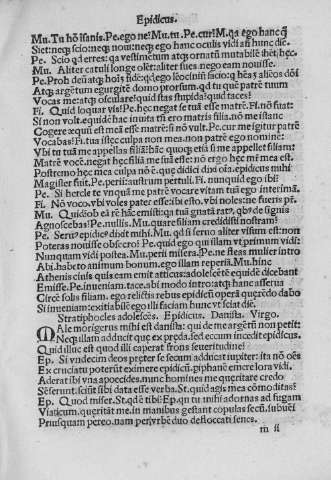 Epidicus.
Mu. Tu hõ iſanis. Pe. ego ne? Mu. tu. Pe. cur? M. qa ego hanc q̃
Siet: neq; ſcio: neq; noui: neq; ego hanc oculis vidi añ hunc diẽ.
Pe. Scio qd erres: qa veſtimetum atq; ornatũ mutabile ſthẽt hẽc.
Mu. Aliter catuli longe olẽt: aliter ſues. nego eam nouiſſe.
Pe. Proh deũ atq; hoĩs fidẽ: qd ego lẽociniũ facio: q hẽas aliẽos dõi
Atq; argẽtum egurgitẽ domo prorſum. qd tu quẽ patrẽ tuum
Vocas me: atq; oſculare? quid ſtas ſtupida? quid taces?
Fi. Quid loquar vis? Pe. hec negat ſe tuã eſſe matrẽ. Fi. nõ fuat:
Si non volt. equidẽ hac inuita tñ ero matris filia. nõ me iſtanc
Cogere æquũ eſt meã eſſe matrẽ: ſi nõ vult. Pe. cur me igitur patrẽ
Vocabas? Fi. tua iſtẽc culpa non mea. non patrẽ ego nominẽ:
Vbi tu tuã me appellas filiã? hãc quoq; etiã ſi me appellet filiam:
Matrẽ vocẽ. negat hec filiã me ſuã eſſe: nõ ergo hẽc mr̃ mea eſt.
Poſtremo hẽc mea culpa nõ ẽ. que didici dixi oĩa. epidicus mihi
Magiſter fuit. Pe. perii: auſtrum pertuli. Fi. nunquid ego ibi?
Pe. Si hercle te vnquã me patrẽ vocare vitam tuã ego interimã.
Fi. Nõ voco. vbi voles pater eſſe: ibi eſto. vbi noles: ne fueris pr̃.
Mu. Quid ob eã rẽ hãc emiſti: qa tuã gnatã rat? qb de ſignis
Agnoſcebas? Pe. nullis. Mu. quare filiam credidiſti noſtram?
Pe. Seru epidic dixit mihi. Mu. qd ſi ſeruo aliter viſum eſt: non
Poteras nouiſſe obſecro? Pe. quid ego qui illam vt primum vidi:
Nunquam vidi poſtea. Mu. perii miſera. Pe. ne fleas mulier intro
Abi. habeto animum bonum. ego illam reperiã. Mu. hinc
Athenis ciuis quis eam emit atticus: adoleſcẽtẽ equidẽ dicebant
Emiſſe. Pe. inueniam. tace. abi modo intro: atq; hanc aſſerua
Circẽ ſolis filiam. ego relictis rebus epidicũ operã quẽrẽdo dabo
Si inueniam: exitiabilẽ ego illi faciam hunc vt fiat diẽ.
Stratiphocles adoleſcẽs. Epidicus. Daniſta. Virgo.
Male morigerus mihi eſt daniſta: qui de me argẽtũ non petit:
Neq; illam adducit que ex prẽda. ſed eccum incedit epidicus.
Quid illuc eſt quod illi caperat frons ſeueritudine?
Ep. Si vndecim deos prẽter ſe ſecum addicat iupiter: ita nõ oẽs
Ex cruciatu poterũt eximere epidicũ. piphanẽ emere lora vidi.
Aderat ibi vna apoecides. nunc homines me queritare credo
Sẽſerunt. ſciũt ſibi data eſſe verba. St. quid agis mea cõmoditas?
Ep. Quod miſer. St. qd ẽ tibi? Ep. qn tu mihi adornas ad fugam
Viaticum. queritãt me. in manibus geſtant copulas ſecũ. ſubueĩ
Priuſquam pereo. nam per vrbẽ duo deſtoccati ſenes.
m ii